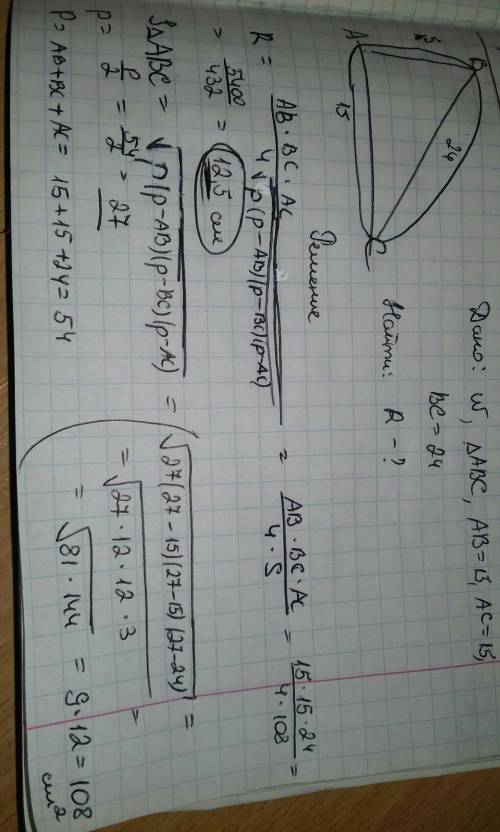 Дано: W, ΔABC, AB=15, AC=15,
BC=24
Найти: R - ?
B
15
A
24
15
C
Решение
R = AB · BC · AC / 4√p(p-AB)(p-BC)(p-AC) = AB · BC · AC / 4 · S = 15 · 15 · 24 / 4 · 108 =
= 5400 / 432 = 12,5 см
SΔABC = √p(p-AB)(p-BC)(p-AC) = √27(27-15)(27-15)(27-24) =
= √27 · 12 · 12 · 3 =
= √81 · 144 = 9 · 12 = 108 см2
p = P/2 = 54/2 = 27
P = AB+BC+AC = 15+15+24 = 54